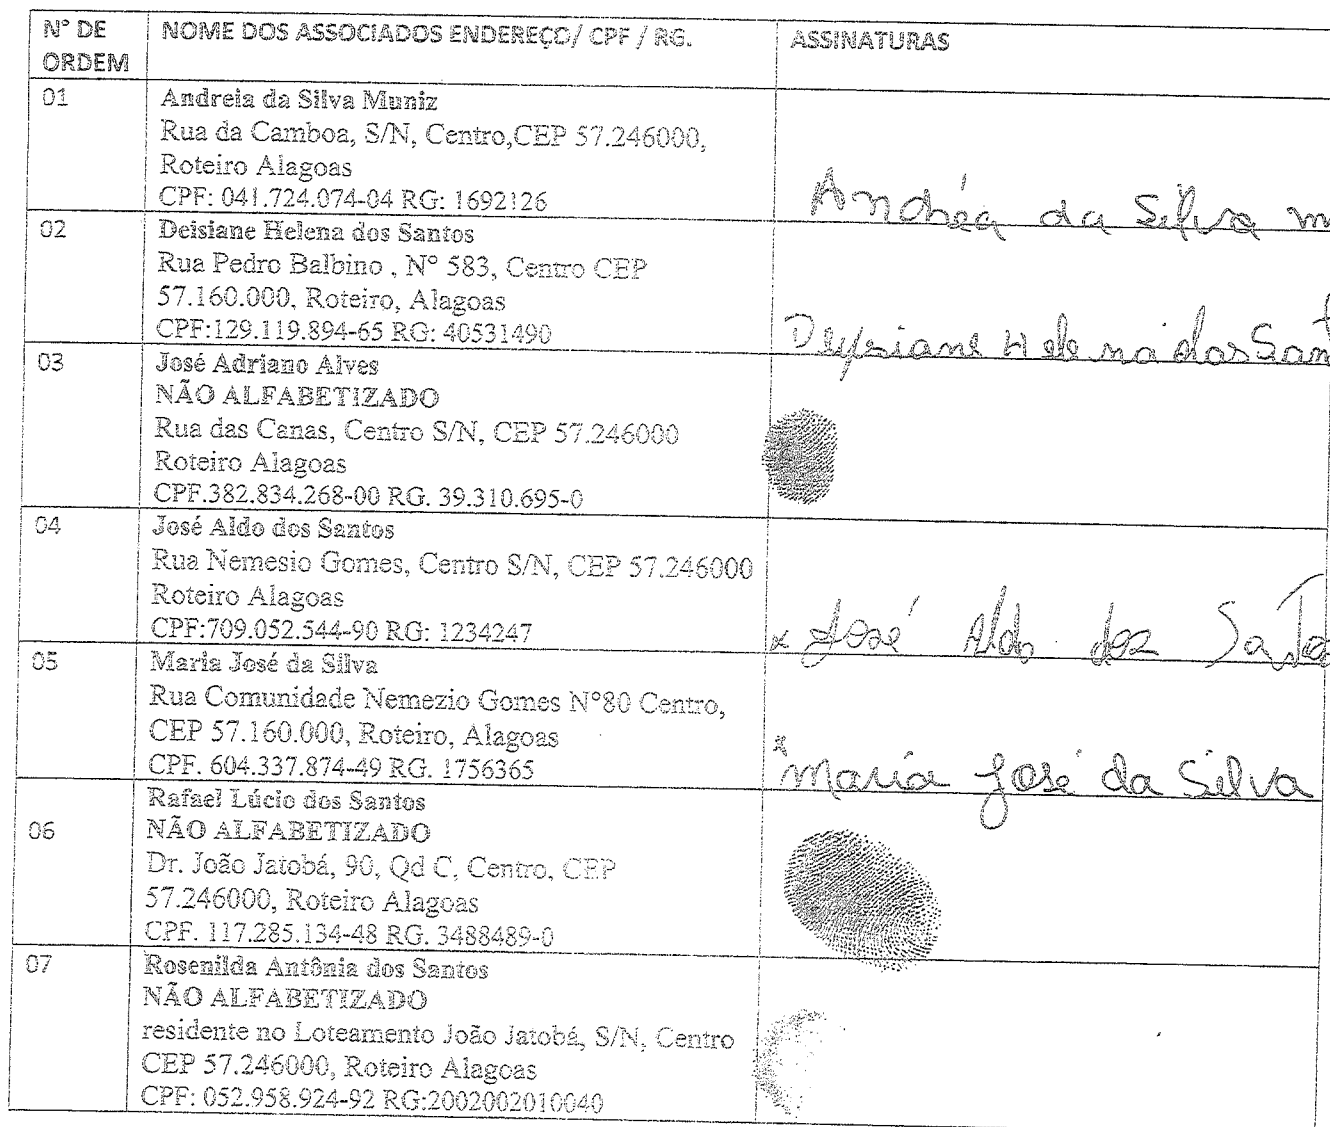 Nº DE ORDEM
NOME DOS ASSOCIADOS ENDEREÇO/ CPF / RG.
ASSINATURAS
01
Andreia da Silva Muniz
Rua da Camboa, S/N, Centro,CEP 57.246000,
Roteiro Alagoas
CPF: 041.724.074-04 RG: 1692126
Andréa da Silva m
02
Deisiane Helena dos Santos
Rua Pedro Balbino , Nº 583, Centro CEP
57.160.000, Roteiro, Alagoas
CPF:129.119.894-65 RG: 40531490
Deysiane Helena dos Sant
03
José Adriano Alves
NÃO ALFABETIZADO
Rua das Canas, Centro S/N, CEP 57.246000
Roteiro Alagoas
CPF.382.834.268-00 RG. 39.310.695-0
04
José Aldo dos Santos
Rua Nemesio Gomes, Centro S/N, CEP 57.246000
Roteiro Alagoas
CPF:709.052.544-90 RG: 1234247
x José Aldo dos Sato
05
Maria José da Silva
Rua Comunidade Nemezio Gomes Nº80 Centro,
CEP 57.160.000, Roteiro, Alagoas
CPF. 604.337.874-49 RG. 1756365
x Maria José da Silva
06
Rafael Lúcio dos Santos
NÃO ALFABETIZADO
Dr. João Jatobá, 90, Qd C, Centro, CEP
57.246000, Roteiro Alagoas
CPF. 117.285.134-48 RG. 3488489-0
07
Rosenilda Antônia dos Santos
NÃO ALFABETIZADO
residente no Loteamento João Jatobá, S/N, Centro
CEP 57.246000, Roteiro Alagoas
CPF: 052.958.924-92 RG:2002002010040